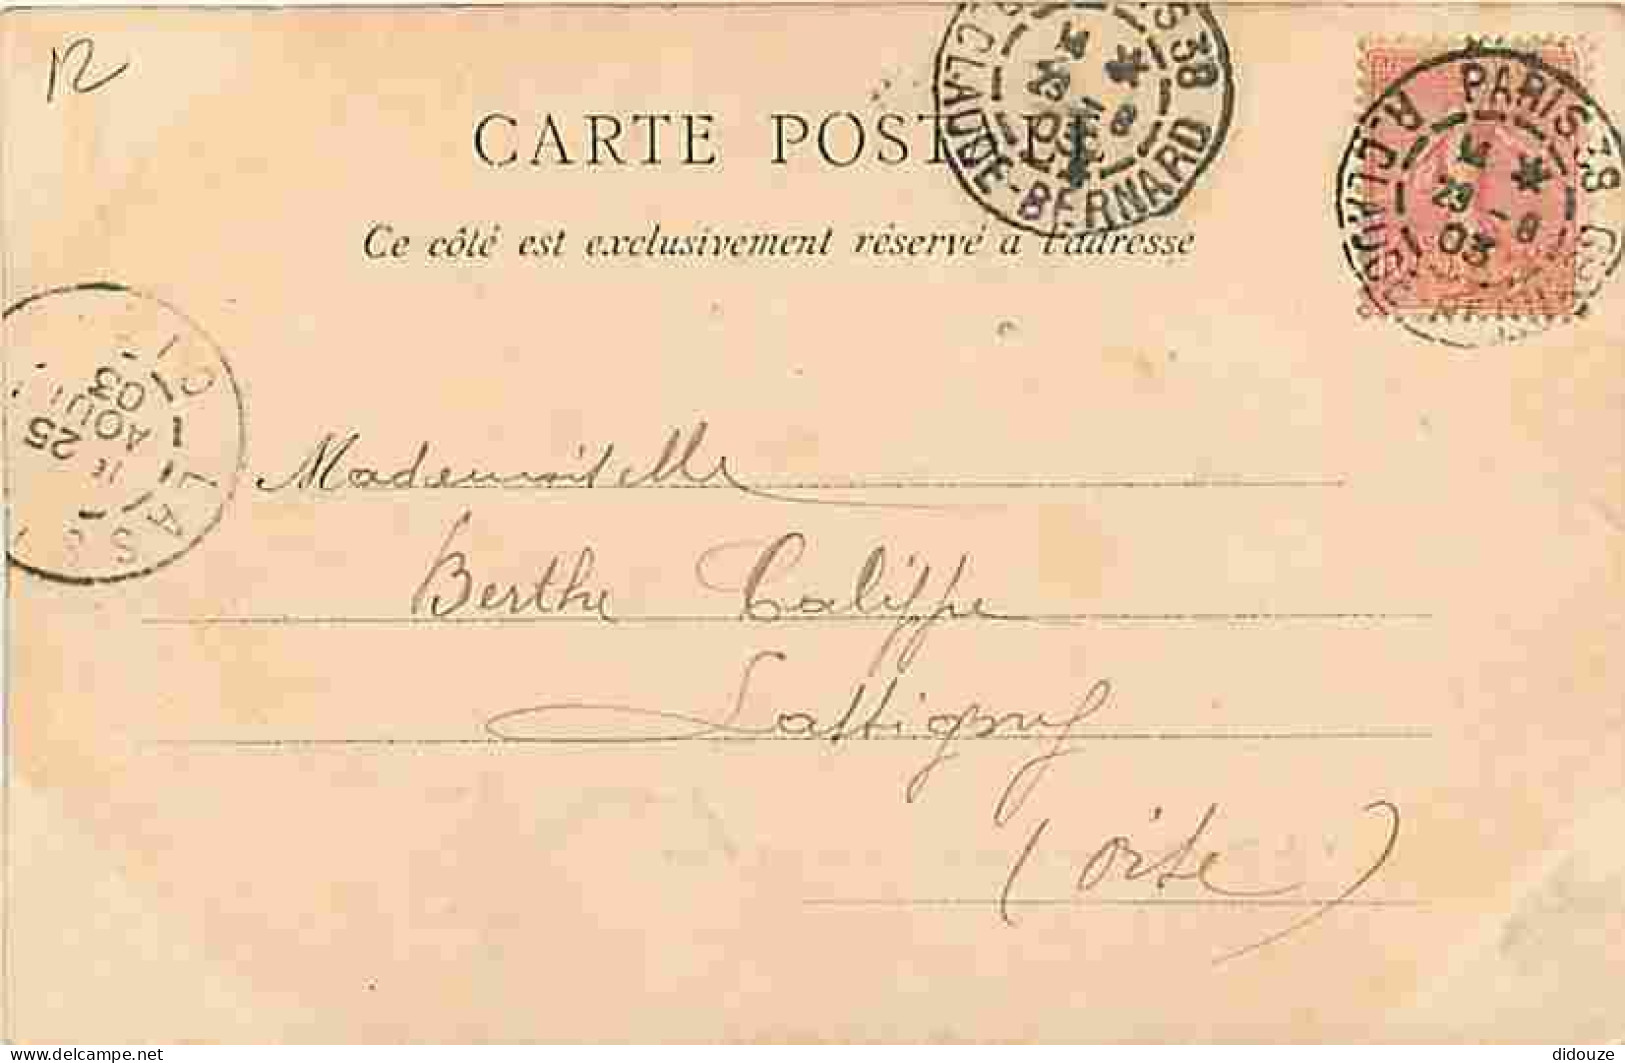 CARTE POSTALE
Ce côté est exclusivement réservé a l'adresse
PARIS 38
R. CLAUDE-BERNARD
23 - 8
03
CLAUDE-BERNARD
S 38
25
AOUT
03
LASSIGNY
Mademoiselle
Berthe Califfe
Lattigny
(Oise)
Delcampe.net
didouze